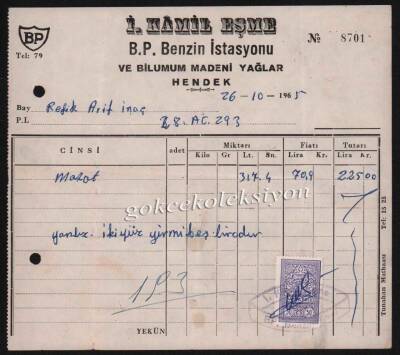 İ. KÂMİL EŞME
BP
B.P. Benzin İstasyonu
№ 8701
Tel: 79
VE BİLUMUM MADENİ YAĞLAR
HENDEK
26-10-1965
Bay Refik Arif İnaç
P.L. 28. AC. 293
CİNSİ adet Miktarı Fiatı Tutarı
Kilo Gr Lt. Sn. Lira Kr. Lira Kr.
Mazot 317.4 70,9 22500
gokcekoleksiyon
yanlız. ikiyüz yirmibeş liradır
YEKÜN
Tunahan Matbaası Tel: 15 25